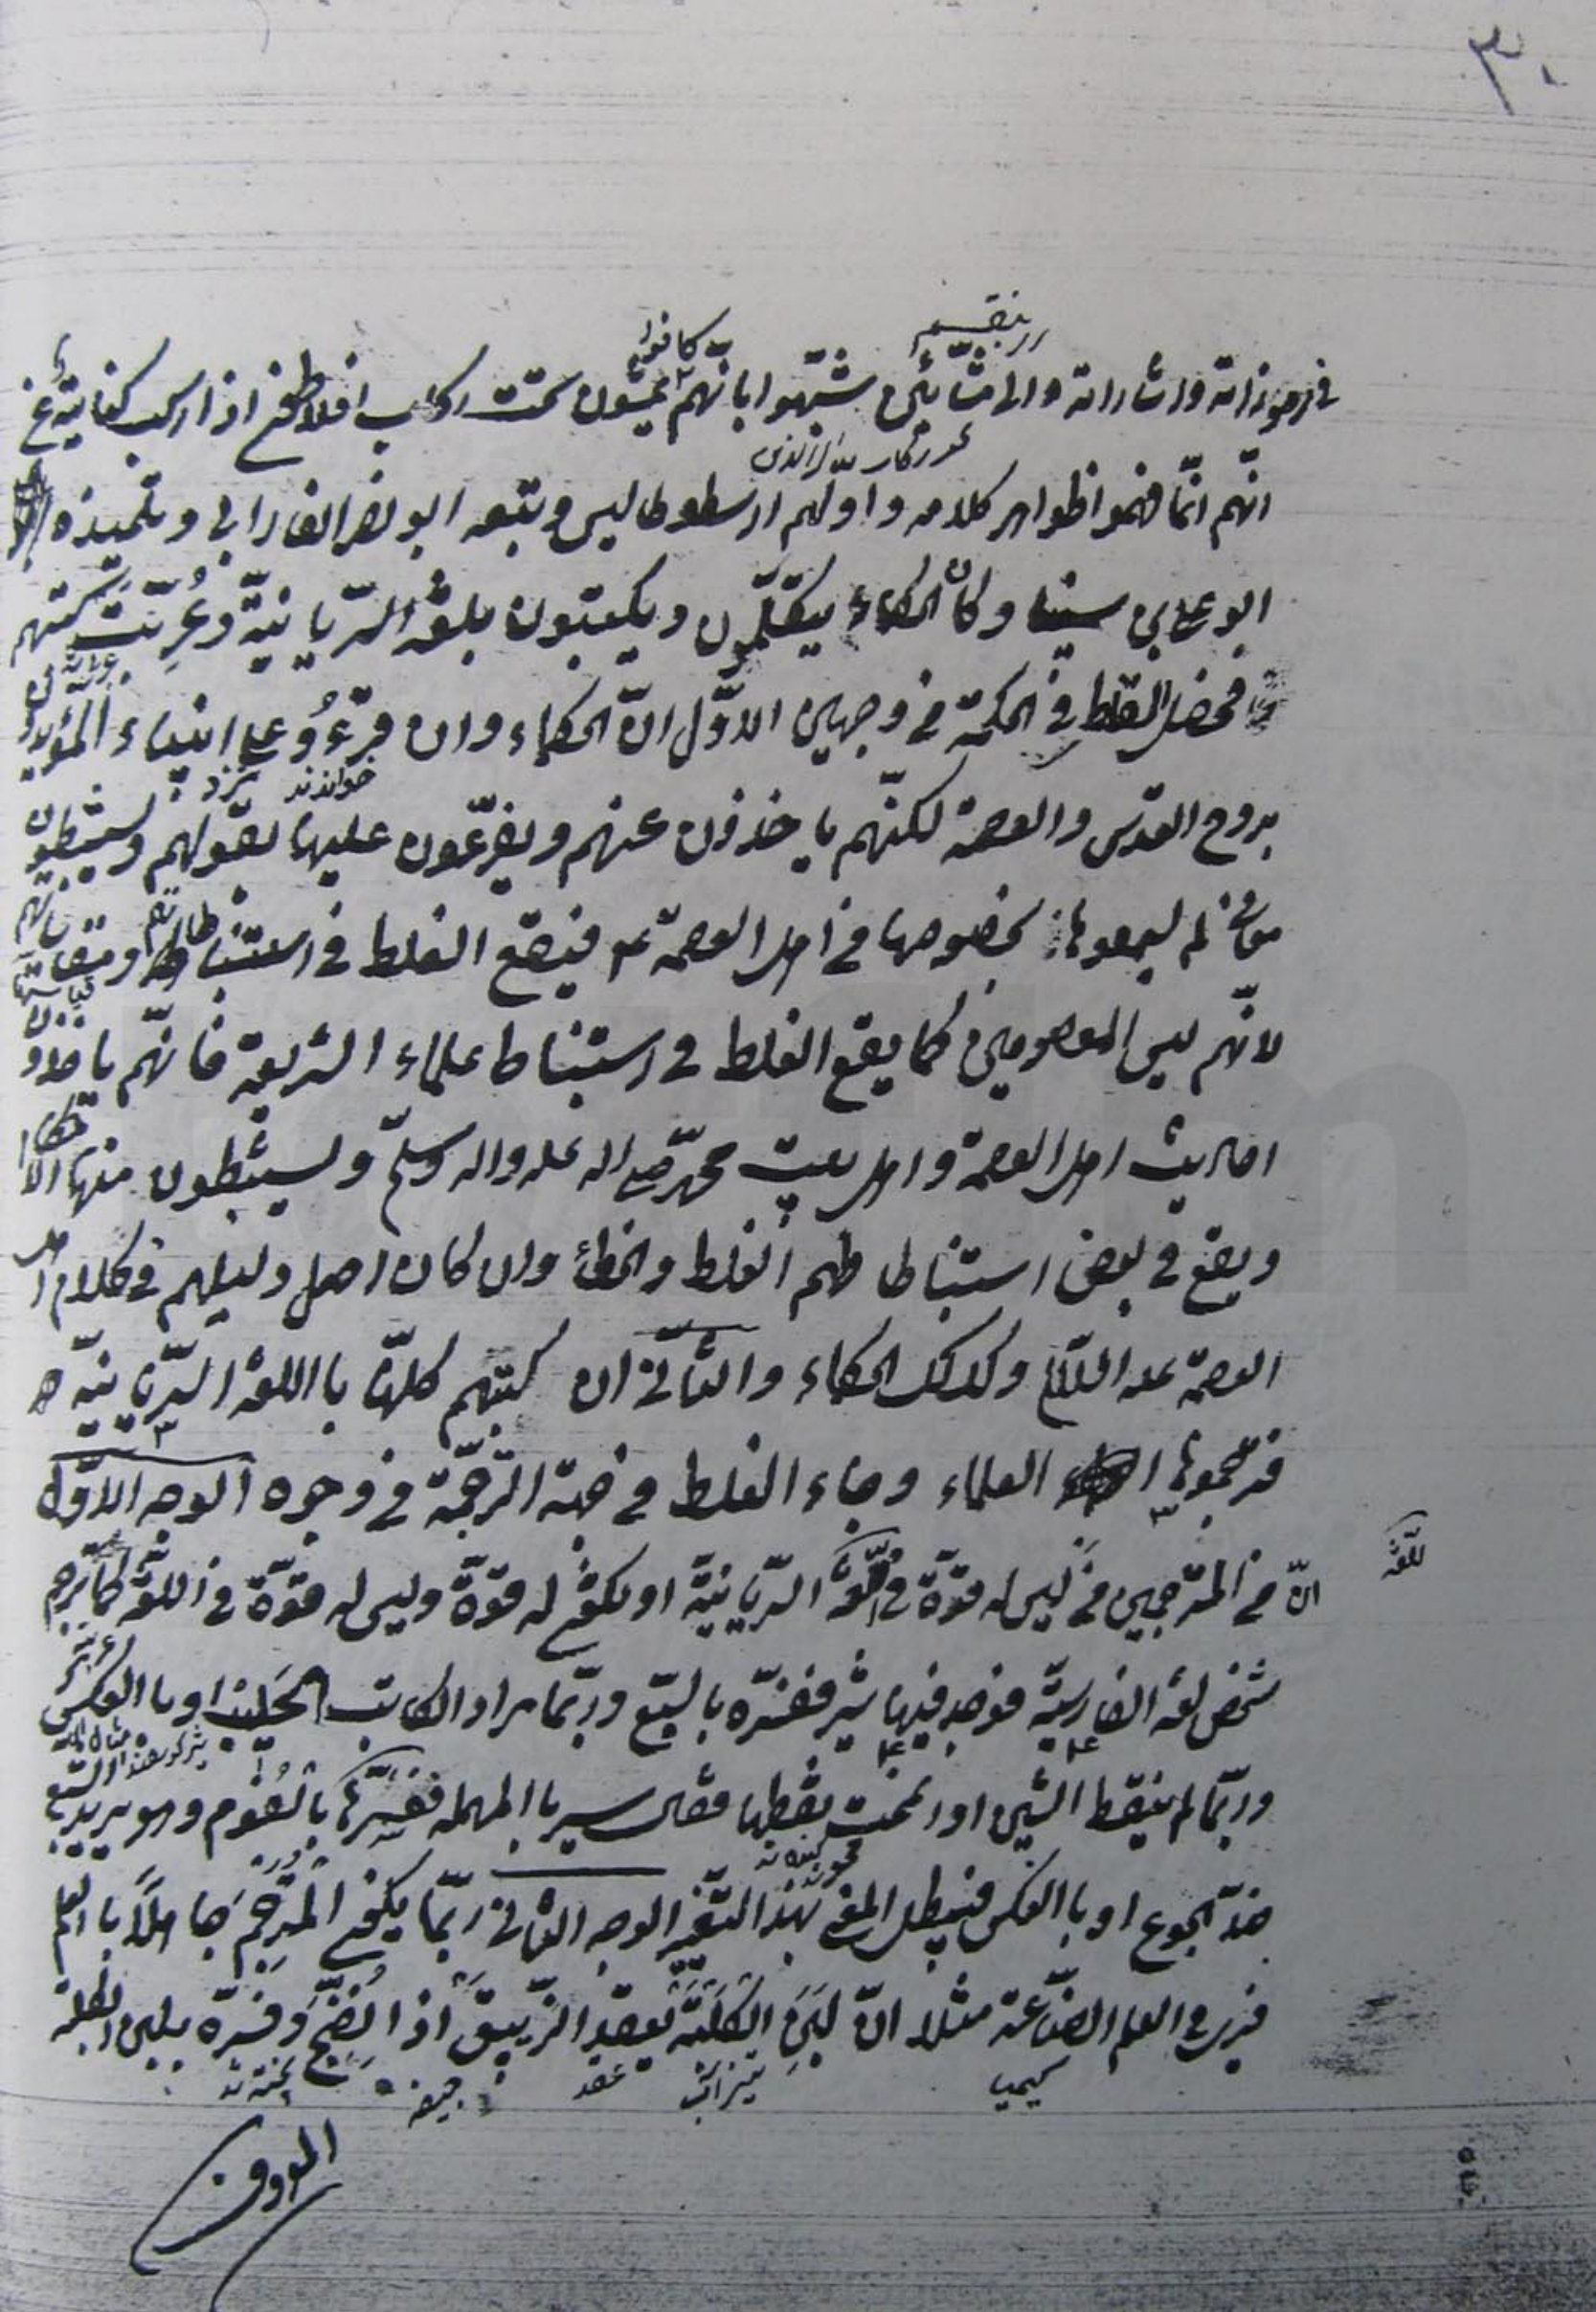 ٣٠
من رموزاته واشاراته والمشائين شبّهوا بانّهم كانوا يمشون تحت ركاب افلاطن اذا ركب كناية عن
انّهم انّما فهموا ظواهر كلامه واولهم ارسطوطاليس وتبعه ابو نصر الفارابي وتلميذه
ابو علي بن سينا وكان الحكماء يتكلّمون ويكتبون بلغة السّريانيّة وعُرّبت كتبهم
فحصل الغلط في الحكمة من وجهين الاوّل انّ الحكماء وان قرءُوا علي انبياء المؤيدون
خواندند نزد
بروح القدس والعصمة لكنّهم ياخذون عنهم ويفرّعون عليها بعقولهم ويستنبطون
لم يسمعوها بخصوصها من اهل العصمة ع فيقع الغلط في استنباطاتهم
لانّهم ليس المعصومين كما يقع الغلط في استنباط علماء الشريعة فانّهم ياخذون
احاديث اهل العصمة واهل بيت محمّد صلى اله عليه واله وسلّم ويستنبطون منها الاحكام
ويقع في بعض استنباطاتهم الغلط والخطأ وان كان اصل دليلهم من كلام اهل
العصمة عليه السلام وكذلك الحكماء والثّاني ان كتبهم كلّها باللغة السّريانيّة
فترجموها العلماء وجاء الغلط من جهة الترجمة من وجوه الوجه الاوّل
للّغة
انّ من المترجمين من ليس له قوّة في اللّغة السّريانيّة او يكون له قوّة وليس له قوّة في اللغة كما ترجم
عربيّة
شخص لغة الفارسيّة فوجد فيها شير ففسّره بالسبع وربّما مراد الكاتب الحليب او بالعكس
وربّما لم ينقط الشين او انمحت نقطها فقال سير بالمهمله ففسّرها بالثوم وهو يريد
ضدّ الجوع او بالعكس فيبطل المعنى بهذا التّغيير الوجه الثاني ربّما يكون المترجم جاهلاً بالعلم
فيرى في العلم الصّناعة مثلا انّ لبن الكلبة يعقد الزّيبق اذا نضج وفسّره بلبن الكلبة
كيميا
عقد
جيفه
المعروف